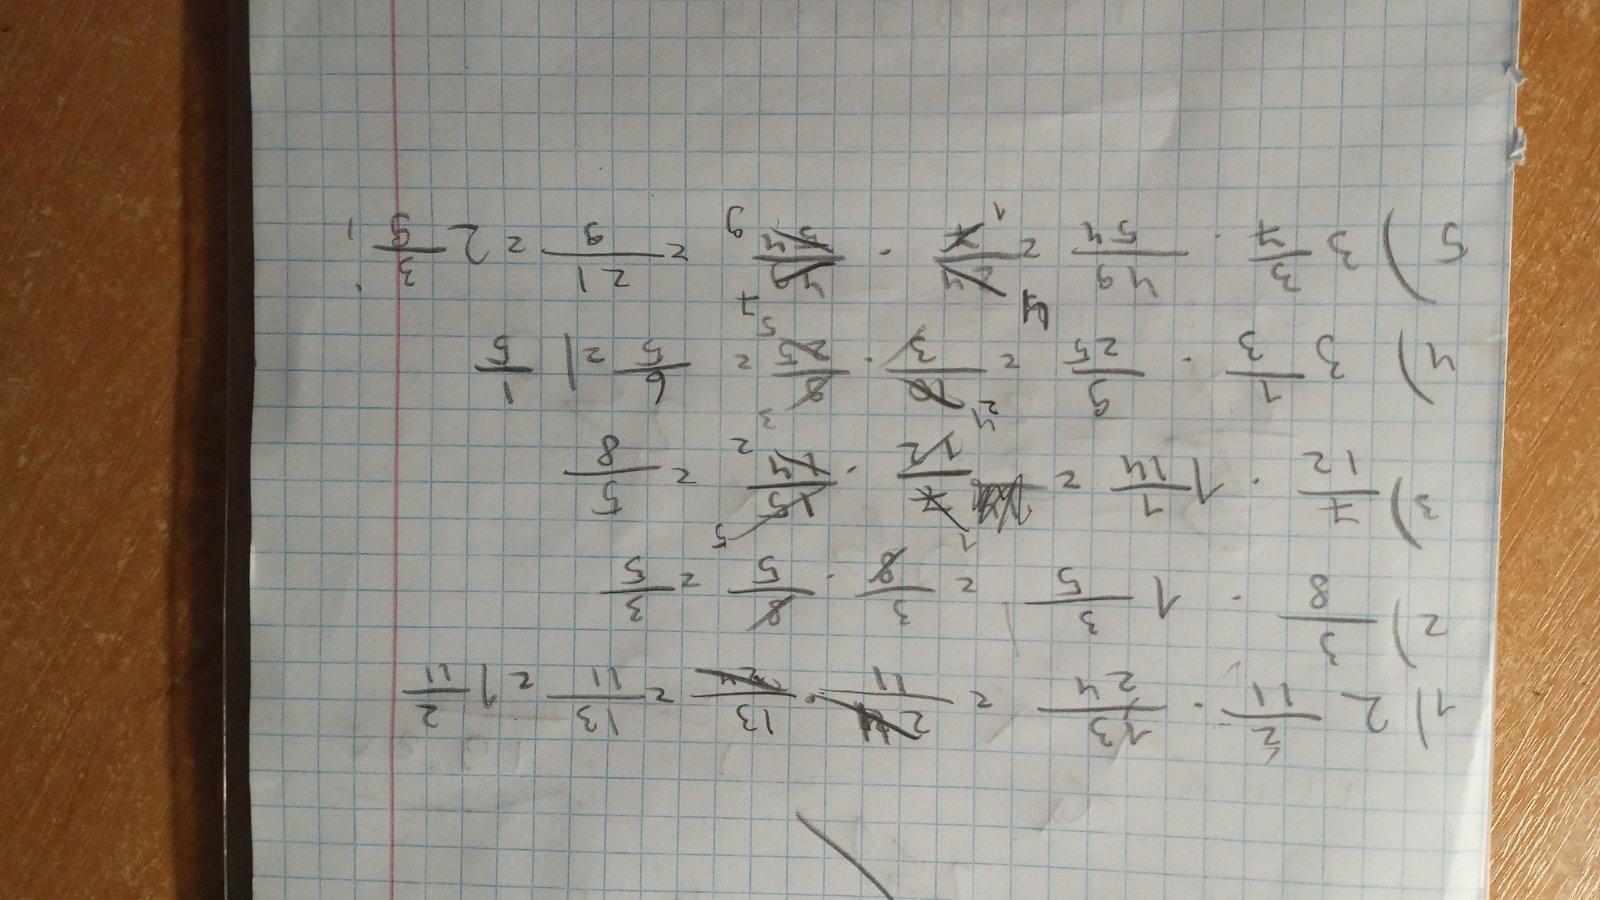 1) 2 2/11 · 13/24 = 24/11 · 13/24 = 13/11 = 1 2/11
2) 3/8 · 1 3/5 = 3/8 · 8/5 = 3/5
3) 7/12 · 1 1/14 = 7/12 · 15/14 = 5/8
4) 3 1/3 · 9/25 = /3 · 9/25 = 6/5 = 1 1/5
5) 3 3/7 · 49/54 = 24/7 · 49/54 = 21/9 = 2 3/9